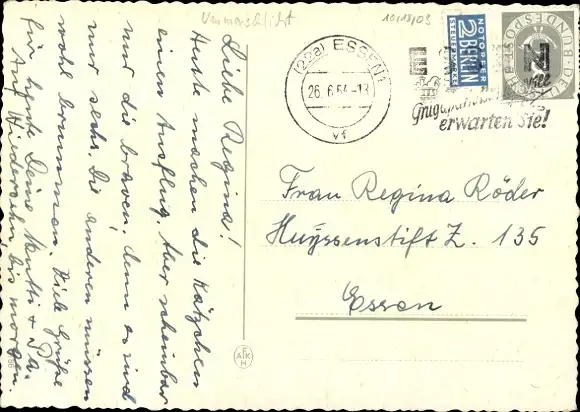 10/18/03
Liebe Regina!
Heute machen die Kätzchen
einen Ausflug. Aber scheinbar
nur die braven, denn es sind
nur sechs. Die anderen müssen
wohl brummen. Viele Grüße
für heute Deine Mutti + Pa.
Auf Wiedersehn bis morgen.
(22a) ESSEN 1
26.6.54-13
vf
erwarten Sie!
NOTOPFER
2 BERLIN
STEUERMARKE
DEUTSCHE BUNDESPOST
Frau Regina Röder
Huyssenstift Z. 135
Essen
AKH